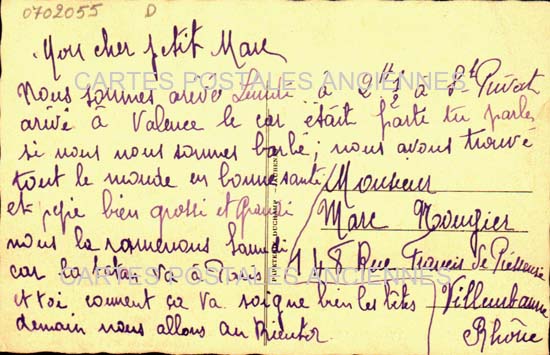 0702055 D
Mon cher petit Marc
Nous sommes arrivé Lundi à 2h ½ à St Privat
arivé à Valence le car était parti tu parles
si nous nous sommes barbé ; nous avons trouvé
tout le monde en bonne santé
et pepé bien grossi et grandi
nous la ramenons Samedi
car la tata va à Paris
et toi comment ça va soigne bien les bêtes
demain nous allons au
Monsieur
Marc Rougier
148 Rue Francis de Pressensé
Villeurbanne
Rhône
CARTES POSTALES ANCIENNES
CARTES POSTALES ANCIENNES